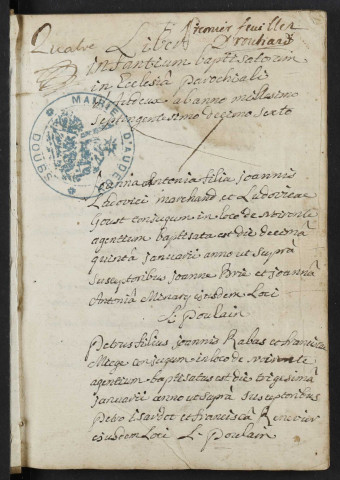 Quatre Liber premier feuillet
Drouhard
infantium baptisatorum
in Ecclesiâ parochiali
ab anno millesimo
septengentesimo decimo sexto
MAIRIE D'AUDEUX
DOUBS
Joanna Antonia filia Joannis
Ludovici marchand et Ludovicae
Goust conjugum in loco de
agentium baptisata est die decimâ
quintâ januarii anno ut suprâ
susceptoribus Joanne et joannâ
Antoniâ Menary ejusdem Loci
L. Poulain
Petrus filius joannis Rabas et franciscae
Mege conjugum in loco de
agentium baptisatus est die trigesimâ
januarii anno ut suprâ susceptoribus
Petro Isardot et franciscâ
ejusdem Loci L. Poulain